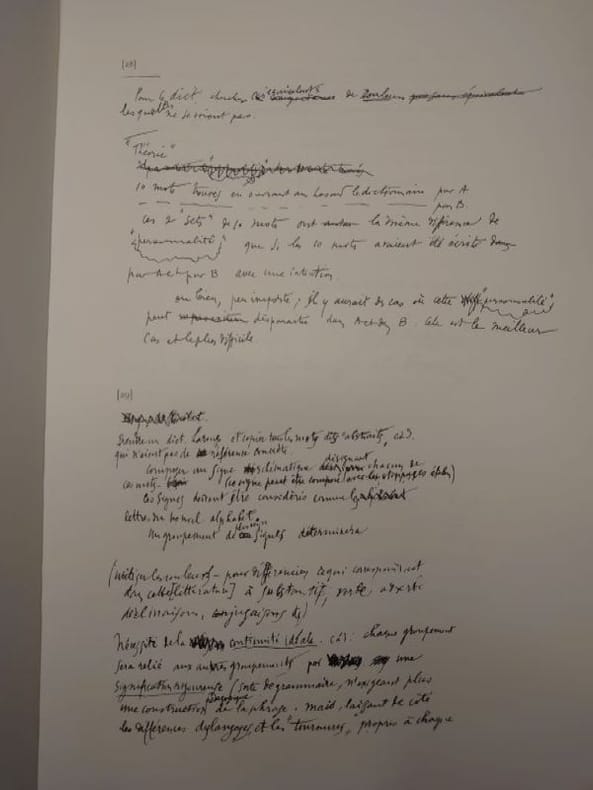 Pour le dict chercher équivalents de couleurs
lesquelles ne se voient pas.
"Théorie"
10 mots trouvés en ouvrant au hasard le dictionnaire par A
par B.
ces 2 "sets" de 10 mots ont la même différence de
"personnalité" que si les 10 mots avaient été écrits
par A et par B avec une intention.
ou bien, peu importe ; il y aurait des cas où cette "personnalité"
peut disparaître dans A et dans B. Cela est le meilleur
cas et le plus difficile.
Prendre un dict. Larousse et copier tous les mots dits "abstraits", càd.
qui n'aient pas de référence concrète.
composer un signe schématique désignant chacun de
ces mots. (ce signe peut être composé avec les stoppages étalon)
ces signes doivent être considérés comme les
lettres du nouvel alphabet.
un groupement de plusieurs signes déterminera
(utiliser les couleurs – pour différencier ce qui correspondrait
dans cette [littérature] à substantif, verbe adverbe
déclinaisons, conjugaisons etc)
Nécessité de la continuité idéale. càd. : chaque groupement
sera relié aux autres groupements par une
signification rigoureuse (sorte de grammaire, n'exigeant plus
une construction de la phrase. mais, laissant de côté
les différences des langages, et les "tournures" propres à chaque